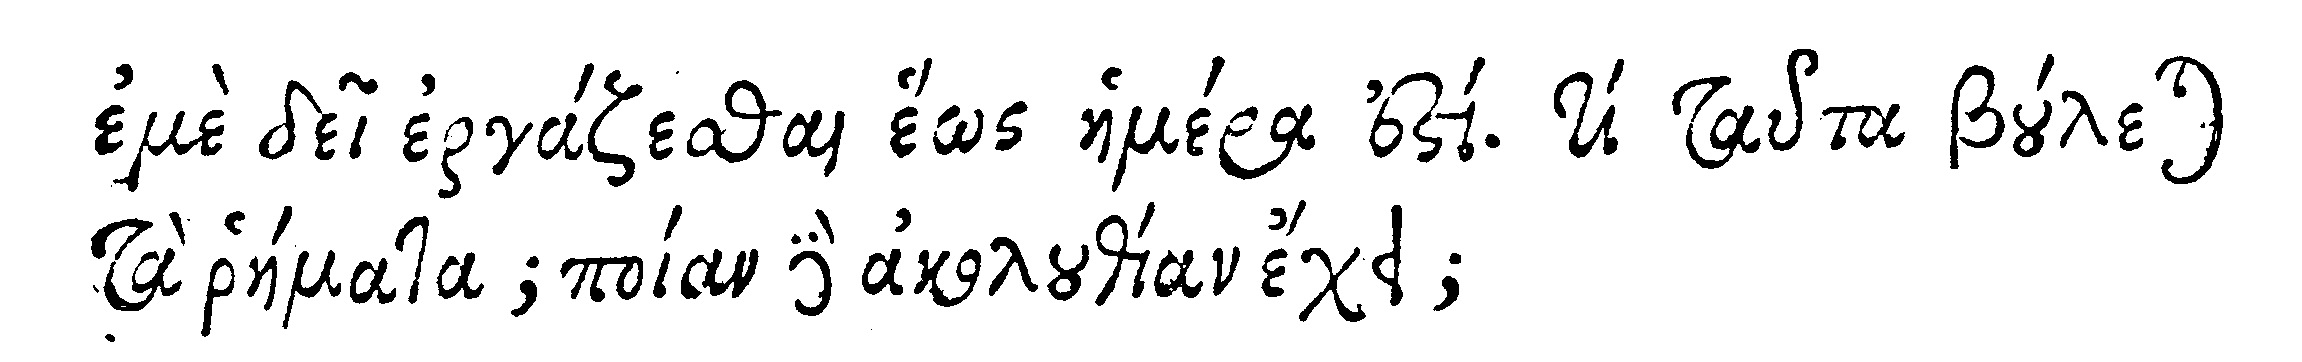 ἐμὲ δεῖ ἐργάζεσθαι ἕως ἡμέρα ἐστί. τί ταῦτα βούλεται
τὰ ῥήματα; ποίαν δὲ ἀκολουθίαν ἔχει;